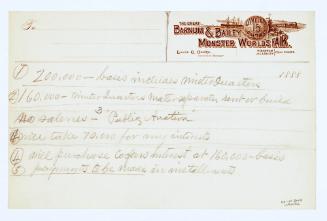 THE GREAT
BARNUM & BAILEY
MONSTER WORLD'S FAIR.
1888
① 200.000 - basis includes Winter Quarters
② 160.000 - Winter Quarters Water separate, rent or build
No salaries - 3 "Public Auction"
will take 75.000 for my interest
④ will purchase Coopers Interest at 160.000 - basis
⑤ payments to be made in installments